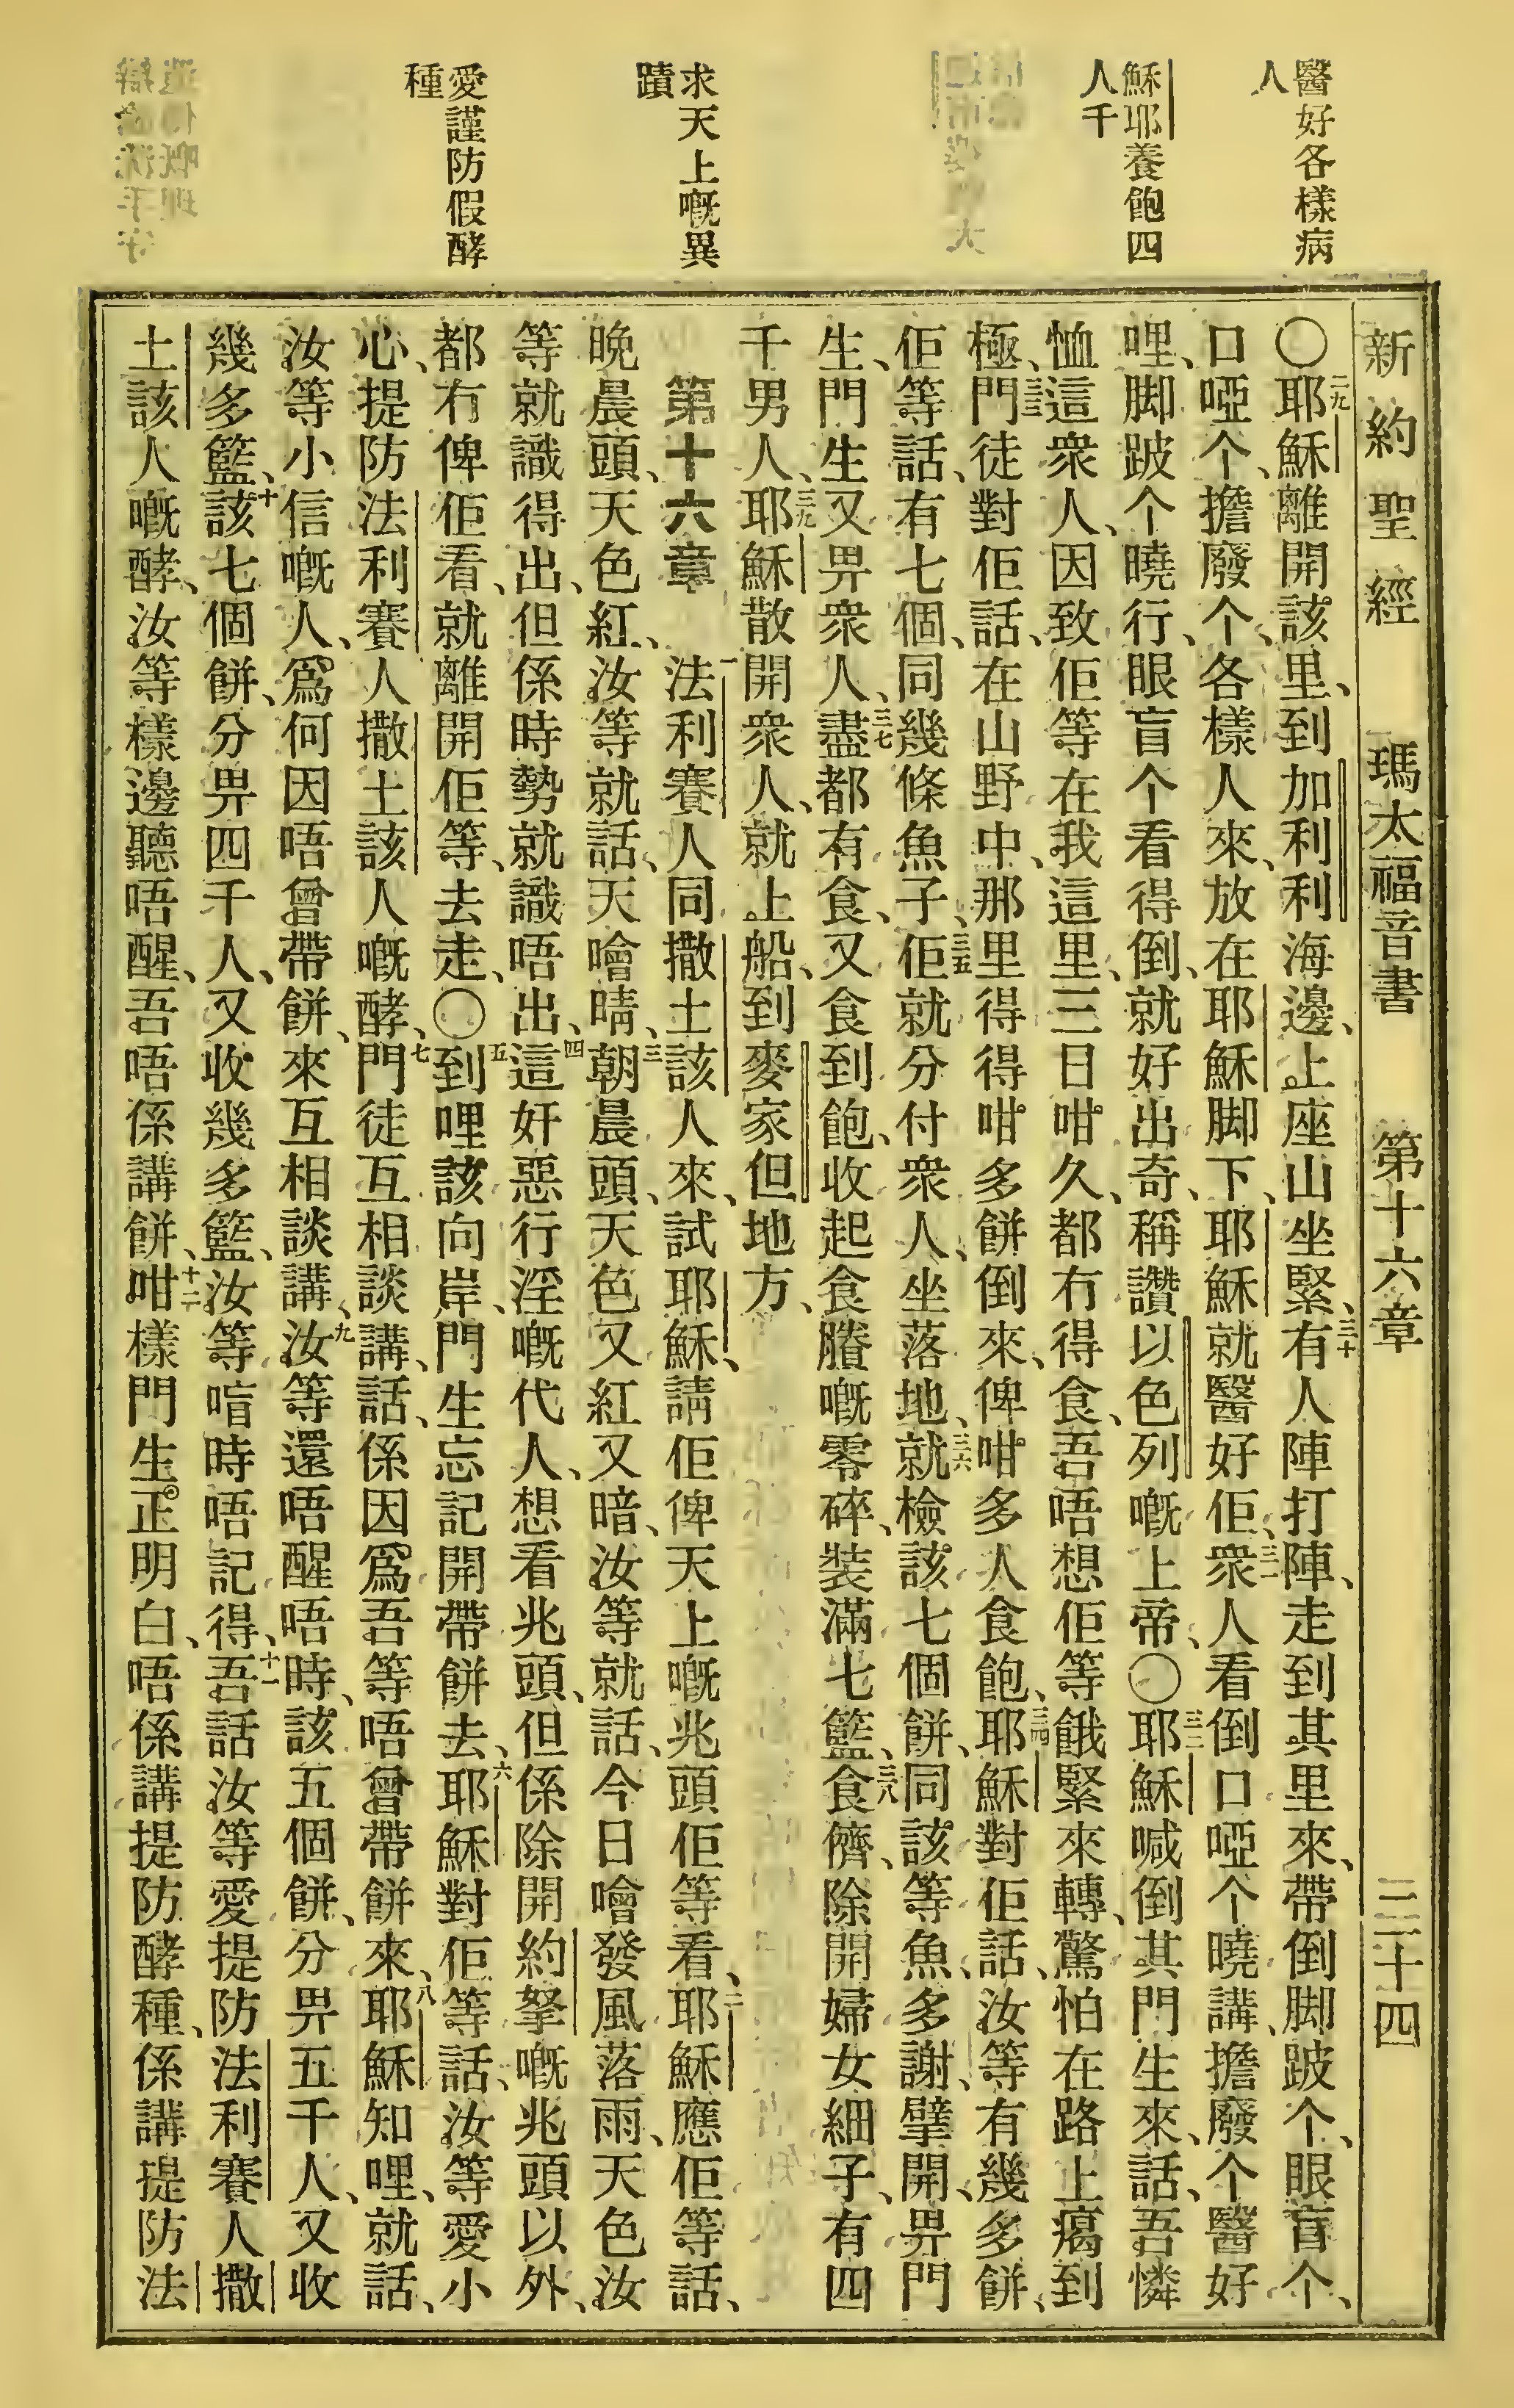 醫好各樣病
人
穌耶養飽四
人千
求天上嘅異
蹟
愛謹防假酵
種
新約聖經 瑪太福音書 第十六章 三十四
〇二九耶穌離開該里、到加利利海邊、上座山坐緊、三十有人陣打陣、走到其里來、帶倒脚跛个、眼盲个、
口啞个、擔廢个、各樣人來、放在耶穌脚下、耶穌就醫好佢、三一衆人看倒口啞个曉講、擔廢个醫好
哩、脚跛个曉行、眼盲个看得倒、就好出奇、稱讚以色列嘅上帝、〇三二耶穌喊倒其門生來、話、吾憐
恤這衆人、因致佢等在我這里、三日咁久、都冇得食、吾唔想佢等餓緊來轉、驚怕在路上癘到
極、三三門徒對佢話、在山野中、那里得得咁多餅倒來、俾咁多人食飽、三四耶穌對佢話、汝等有幾多餅、
佢等話、有七個、同幾條魚子、三五佢就分付衆人、坐落地、三六就檢該七個餅、同該等魚、多謝、擘開、畀門
生、門生又畀衆人、三七盡都有食、又食到飽、收起食賸嘅零碎、裝滿七籃、三八食儕、除開婦女細子、有四
千男人、三九耶穌散開衆人、就上船、到麥家但地方、
第十六章 一法利賽人同撒土該人來、試耶穌、請佢俾天上嘅兆頭佢等看、二耶穌應佢等話、
晚晨頭、天色紅、汝等就話、天噲晴、三朝晨頭、天色又紅又暗、汝等就話、今日噲發風落雨、天色汝
等就識得出、但係時勢就識唔出、四這奸惡行淫嘅代人、想看兆頭、但係除開約拏嘅兆頭以外、
都冇俾佢看、就離開佢等、去走、〇五到哩該向岸、門生忘記開帶餅去、六耶穌對佢等話、汝等愛小
心、提防法利賽人撒土該人嘅酵、七門徒互相談講、話、係因爲吾等唔曾帶餅來、八耶穌知哩、就話、
汝等小信嘅人、爲何因唔曾帶餅、來互相談講、九汝等還唔醒、唔時、該五個餅、分畀五千人、又收
幾多籃、十該七個餅、分畀四千人、又收幾多籃、汝等喑時唔記得、十一吾話汝等愛提防法利賽人撒
土該人嘅酵、汝等樣邊聽唔醒、吾唔係講餅、十二咁樣門生正明白、唔係講提防酵種、係講提防法